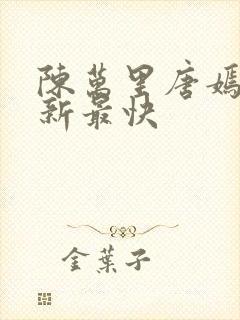 陳萬里唐嫣
新最快
金葉子